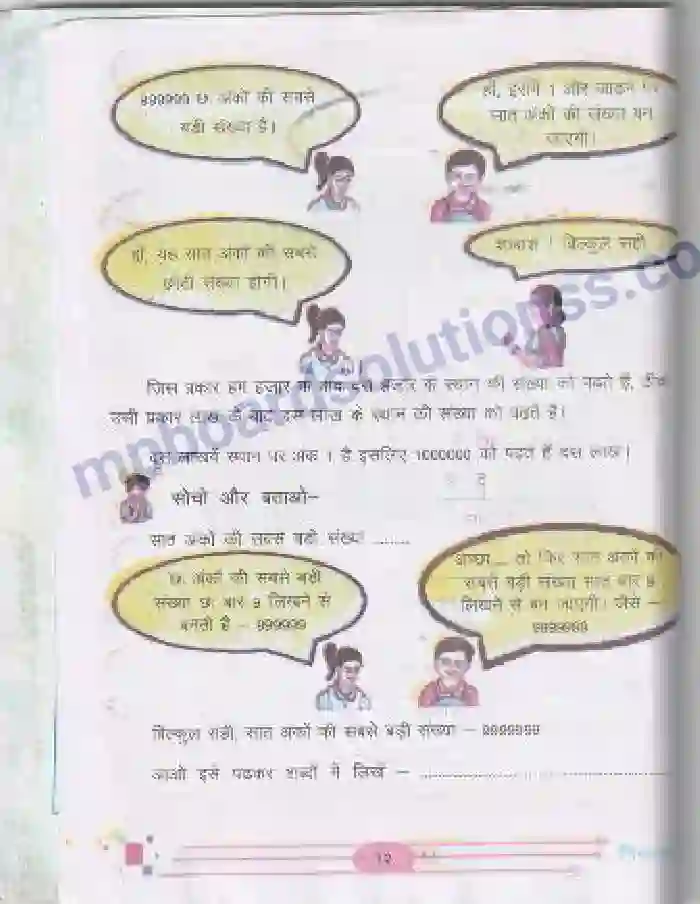 999999 छः अंकों की सबसे
बड़ी संख्या है।
हाँ, इसमें 1 और जोड़ने पर
सात अंकों की संख्या बन
जाएगी।
हाँ, यह सात अंकों की सबसे
छोटी संख्या होगी।
शाबाश ! बिल्कुल सही
जिस प्रकार हम हजार के बाद दस हजार के स्थान की संख्या को पढ़ते हैं, ठीक
उसी प्रकार लाख के बाद दस लाख के स्थान की संख्या को पढ़ते हैं।
दस लाखवें स्थान पर अंक 1 है इसलिए 1000000 को पढ़ते हैं दस लाख।
सोचो और बताओ–
सात अंकों की सबसे बड़ी संख्या ........
छः अंकों की सबसे बड़ी
संख्या छः बार 9 लिखने से
बनती है – 999999
अच्छा... तो फिर सात अंकों की
सबसे बड़ी संख्या सात बार 9
लिखने से बन जाएगी। जैसे –
9999999
बिल्कुल सही, सात अंकों की सबसे बड़ी संख्या – 9999999
आओ इसे पढ़कर शब्दों में लिखें – ........................................
12
mpboardsolutionss.co